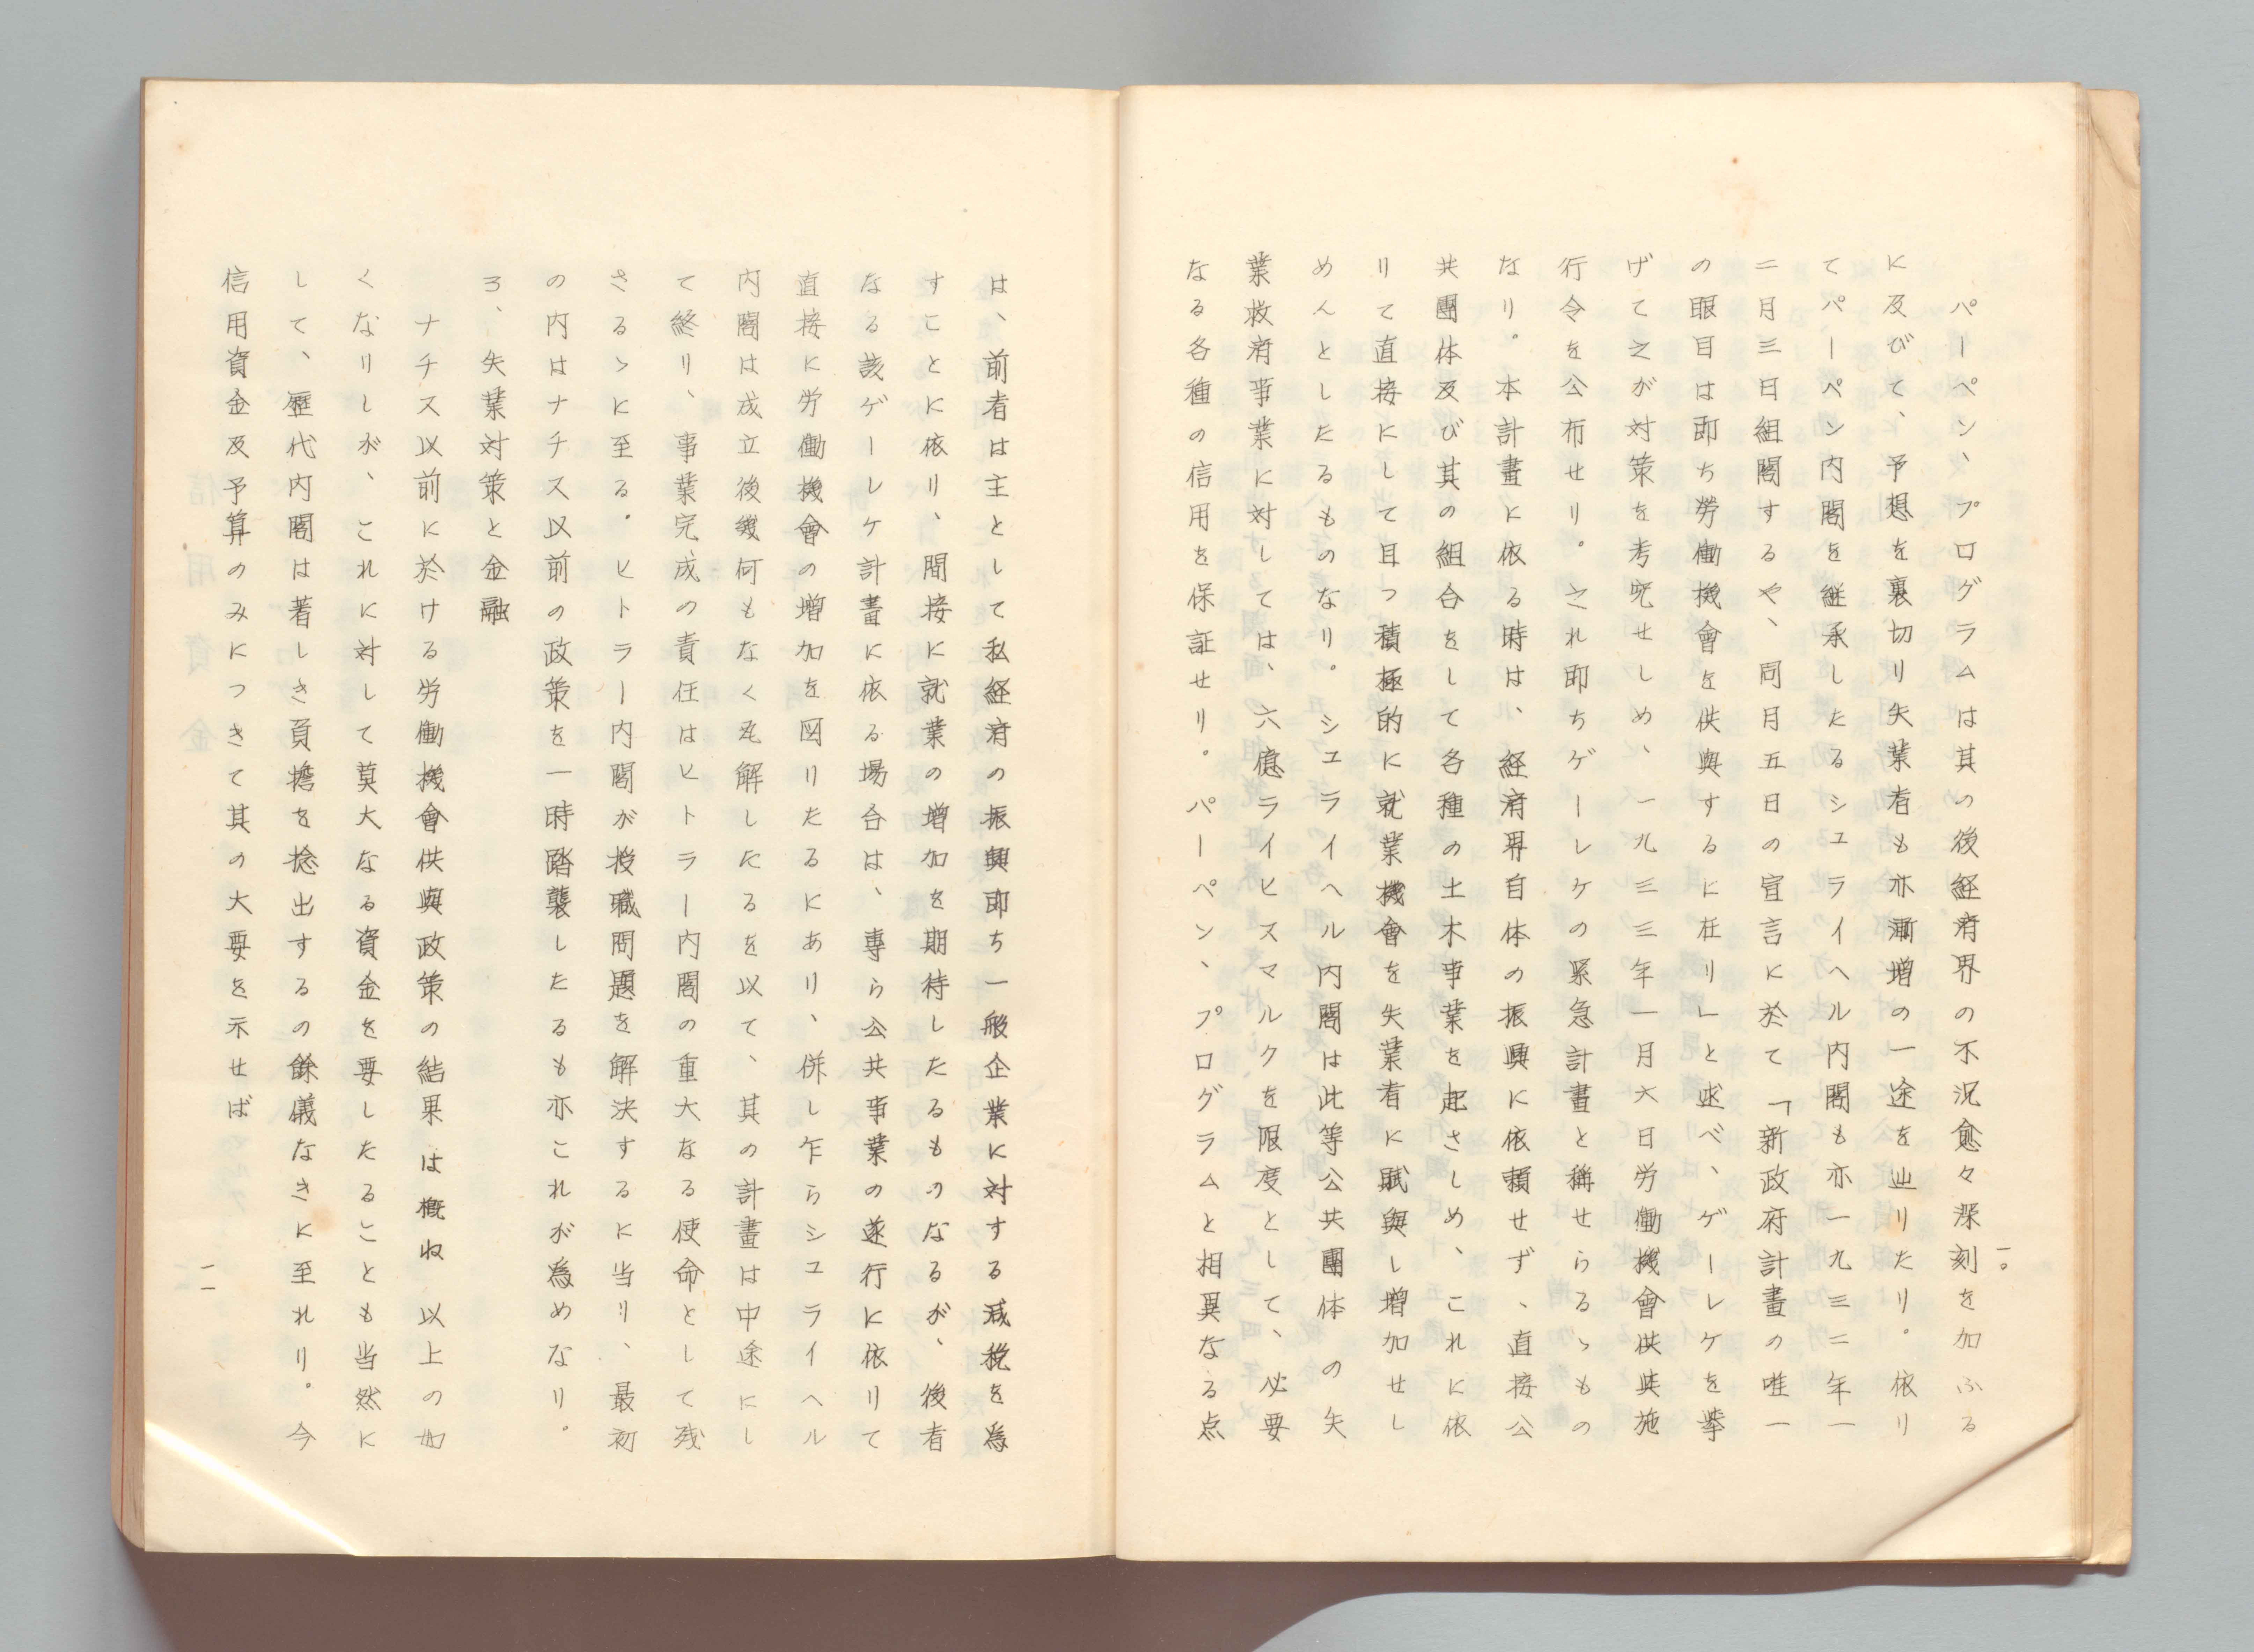 一〇
パーペン、プログラムは其の後経済界の不況愈々深刻を加ふる
に及びて、予想を裏切り失業者も亦漸増の一途を辿りたり。依り
てパーペン内閣を継承したるシユライヘル内閣も亦一九三二年一
二月三日組閣するや、同月五日の宣言に於て「新政府計畫の唯一
の眼目は即ち労働機會を供與するに在り」と述べ、ゲーレケを挙
げて之が対策を考究せしめ、一九三三年一月六日労働機會供與施
行令を公布せり。これ即ちゲーレケの緊急計畫と稱せらるゝもの
なり。本計畫に依る時は、経済界自体の振興に依頼せず、直接公
共團体及び其の組合をして各種の土木事業を起さしめ、これに依
りて直接にして且つ積極的に就業機會を失業者に賦與し増加せし
めんとしたるものなり。シユライヘル内閣は此等公共團体の失
業救済事業に対しては、六億ライヒスマルクを限度として、必要
なる各種の信用を保証せり。パーペン、プログラムと相異なる点
は、前者は主として私経済の振興即ち一般企業に対する減税を為
すことに依り、間接に就業の増加を期待したるものなるが、後者
なる該ゲーレケ計畫に依る場合は、専ら公共事業の遂行に依りて
直接に労働機會の増加を図りたるにあり、併し乍らシユライヘル
内閣は成立後幾何もなく瓦解したるを以て、其の計畫は中途にし
て終り、事業完成の責任はヒトラー内閣の重大なる使命として残
さるゝに至る。ヒトラー内閣が授職問題を解決するに当り、最初
の内はナチス以前の政策を一時踏襲したるも亦これが為めなり。
3、失業対策と金融
ナチス以前に於ける労働機會供與政策の結果は概ね以上の如
くなりしが、これに対して莫大なる資金を要したることも当然に
して、歴代内閣は著しき負擔を捻出するの餘儀なきに至れり。今
信用資金及予算のみにつきて其の大要を示せば
一一